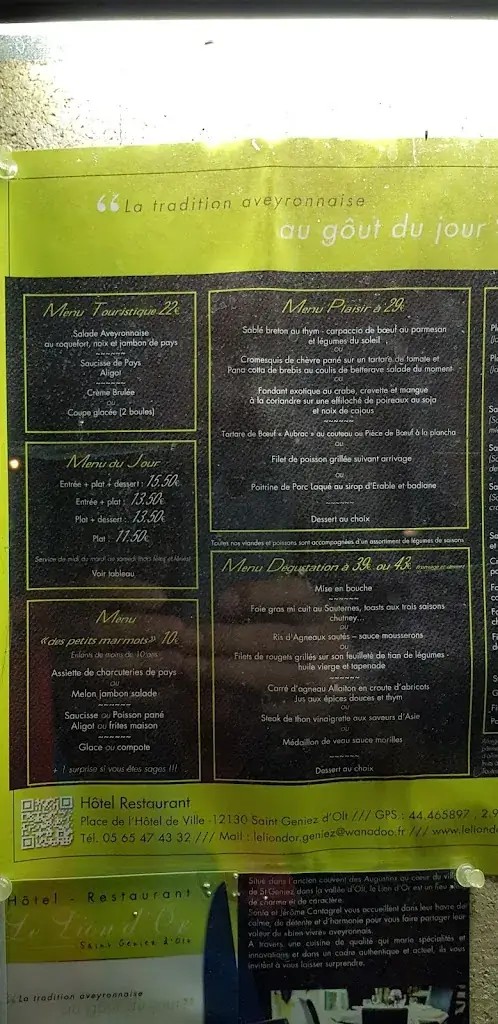 “ La tradition aveyronnaise
au goût du jour
Menu Touristique 22€
Salade Aveyronnaise
au roquefort, noix et jambon de pays
~~~~~~
Saucisse de Pays
Aligot
~~~~~~
Crème Brulée
ou
Coupe glacée (2 boules)
Menu du Jour
Entrée + plat + dessert : 15.50€
Entrée + plat : 13.50€
Plat + dessert : 13.50€
Plat : 11.50€
Service de midi du mardi au samedi (hors fêtes et fériés)
Voir tableau
Menu
«des petits marmots» 10€
Enfants de moins de 10 ans
Assiette de charcuteries de pays
ou
Melon jambon salade
~~~~~~
Saucisse ou Poisson pané
Aligot ou frites maison
~~~~~~
Glace ou compote
+ 1 surprise si vous êtes sages !!!
Menu Plaisir à 29€
Sablé breton au thym - carpaccio de bœuf au parmesan
et légumes du soleil
ou
Cromesquis de chèvre pané sur un tartare de tomate et
Pana cotta de brebis au coulis de betterave salade du moment
ou
Fondant exotique au crabe, crevette et mangue
à la coriandre sur une effiloché de poireaux au soja
et noix de cajous
~~~~~~
Tartare de Bœuf « Aubrac » au couteau ou Pièce de Bœuf à la plancha
ou
Filet de poisson grillée suivant arrivage
ou
Poitrine de Porc Laqué au sirop d'Erable et badiane
~~~~~~
Dessert au choix
Toutes nos viandes et poissons sont accompagnées d'un assortiment de légumes de saisons
Menu Dégustation à 39€ ou 43€
Mise en bouche
~~~~~~
Foie gras mi cuit au Sauternes, toasts aux trois saisons
chutney...
ou
Ris d'Agneaux sautés – sauce mousserons
ou
Filets de rougets grillés sur son feuilleté de tian de légumes -
huile vierge et tapenade
~~~~~~
Carré d'agneau Allaiton en croute d'abricots
Jus aux épices douces et thym
ou
Steak de thon vinaigrette aux saveurs d'Asie
ou
Médaillon de veau sauce morilles
~~~~~~
Dessert au choix
Hôtel Restaurant
Place de l'Hôtel de Ville -12130 Saint Geniez d'Olt /// GPS : 44.465897 , 2.9
Tél. 05 65 47 43 32 /// Mail : leliondor.geniez@wanadoo.fr /// www.leliond
Hôtel - Restaurant
Saint Geniez d'Olt
“ La tradition aveyronnaise
Situé dans l'ancien couvent des Augustins au coeur du
de St Geniez dans la vallée d'Olt, le Lion d'Or est un lieu
de charme et de caractère.
Sonia et Jérôme Cantagrel vous accueillent dans leur havre de
calme, de détente et d'harmonie pour vous faire partager leur
valeur du «bien vivre» aveyronnais.
A travers une cuisine de qualité qui marie spécialités et
innovations et dans un cadre authentique et actuel, ils vous
invitent à vous laisser surprendre.